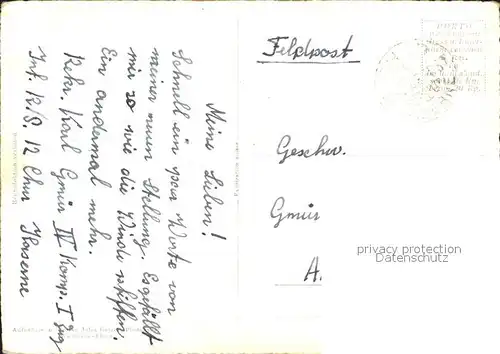 Meine Lieben!
Schnell ein paar Worte von
meiner neuen Stellung. Es gefällt
mir so wie die Winde pfiffen.
Ein andermal mehr.
Rekr. Karl Gmür IV Komp. I Zug
Inf. R/S. 12 Chur Kaserne
Feldpost
PORTO
Geschw.
Gmür
A.
privacy protection
Datenschutz